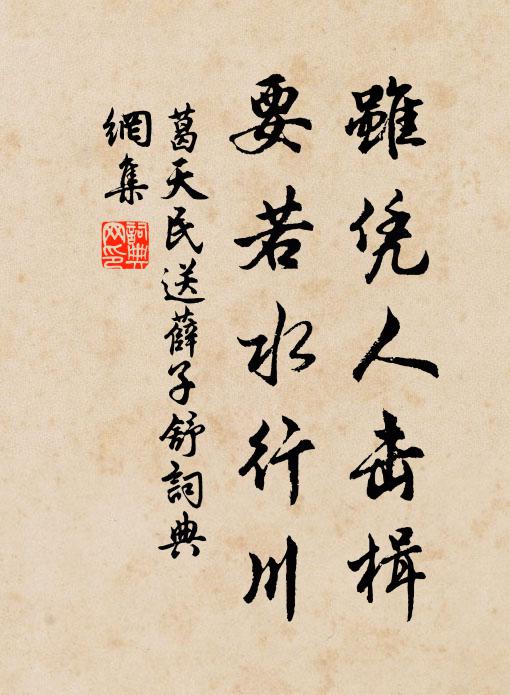 雖凭人击楫
要若水行川
葛天民送薛子舒詞典
網集
詞典网印